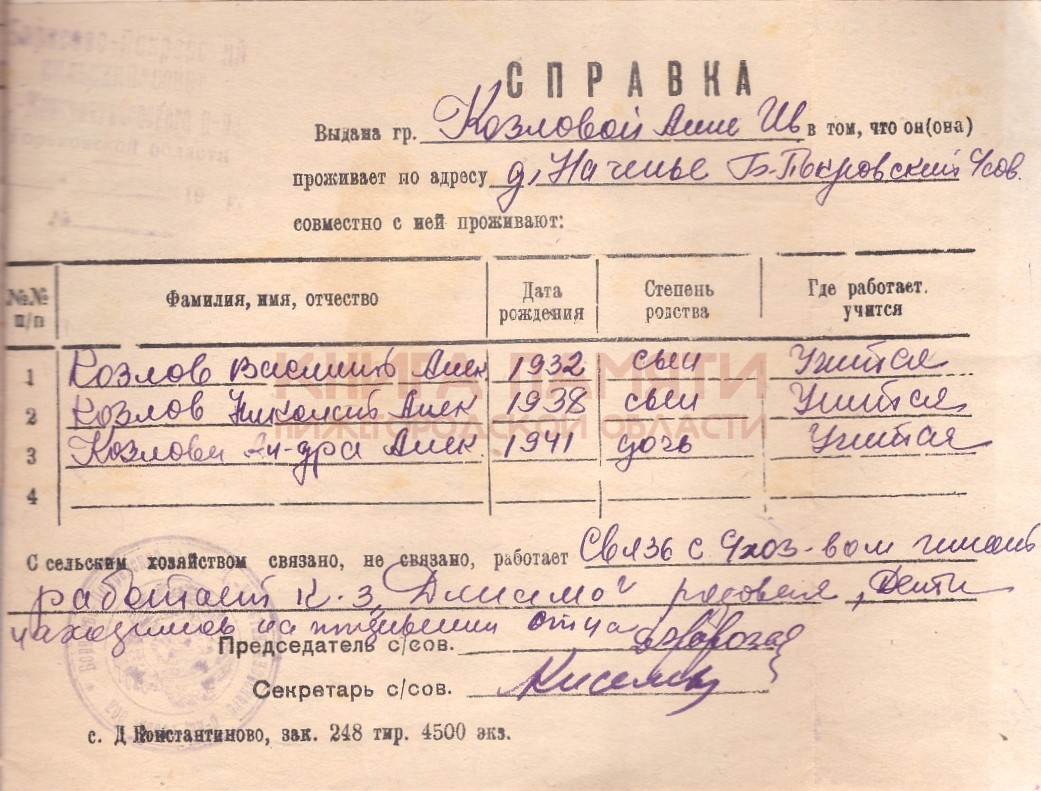 СПРАВКА
Выдана гр. Козловой Анне Ив в том, что он(ова)
проживает по адресу д. Наченье Б-Пкровский с/сов.
совместно с ней проживают:
№№ п/п Фамилия, имя, отчество Дата рождения Степень родства Где работает. учится
1 Козлов Василий Алек 1932 сын Учится
2 Козлов Николай Алек 1938 сын Учится
3 Козлова Ал-дра Алек. 1941 дочь Учится
4
КНИГА ПАМЯТИ
НИЖЕГОРОДСКОЙ ОБЛАСТИ
С сельским хозяйством связано, не связано, работает Связь с с/хоз-вом
работает к-з "Динамо" рядовая, Дети
находились на отца
Председатель с/сов.
Секретарь с/сов.
с. Д Константиново, зак. 248 тир. 4500 экз.